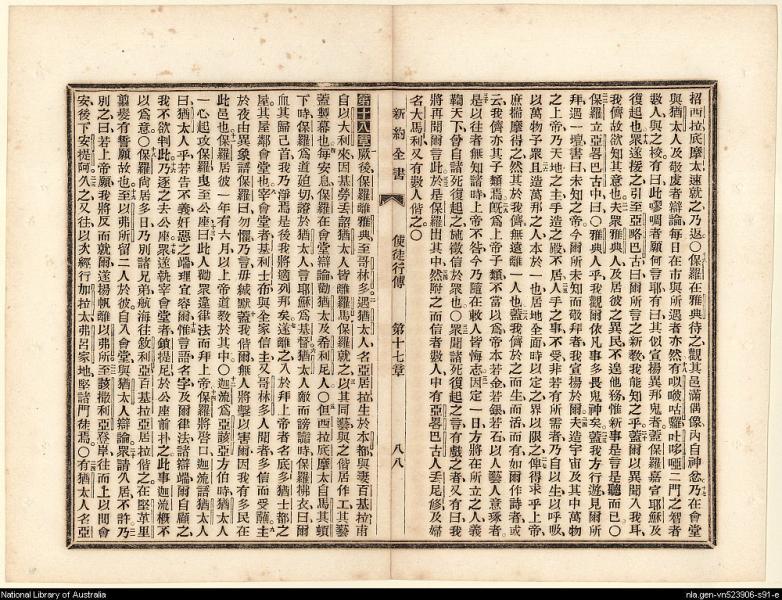 招西拉底摩太速就之乃返○保羅在雅典待之觀其邑滿偶像內自神忿乃在會堂
與猶太人及敬虔者辯論每日在市與所遇者亦然有以 二門之智者
數人與之 有曰此 者願何言耶有曰其似宣揚異邦鬼者蓋保羅嘉宣耶穌及
復起也衆遂援之引至亞略巴古曰爾所言之新教我能知之乎蓋爾以異聞入我耳
我儕故欲知其意也夫衆雅典人及居彼之異民不遑他務惟新事是言是聽而已○
保羅立亞畧巴古中曰○雅典人乎我觀爾依凡事多畏鬼神矣蓋我方行遊見爾所
拜遇一壇書曰未知之帝今爾所未知而敬拜者我宣揚於爾夫造宇宙及其中萬物
之上帝乃天地之主手造之殿不居人手之事不受非若有所需者乃自以生以呼吸
以萬物予衆且造萬邦之人本於一也居地全面時以定之界以限之俾得求乎上帝
庶 摩得之然其於我儕無遠離一人也蓋我儕於之而生而活而有如爾作詩者或
云我儕亦其子類焉既爲上帝子類不當以爲帝本若金若銀若石以人藝人意琢者
是以往者無知諸時上帝不咎今乃隨在敕人皆悔志因定一日方將在所立之人義
鞫天下曾自諸死復起之施徵信於衆也○衆聞諸死復起之言有戲之者又有曰我
將再聞爾言此於是保羅出其中然附之而信者數人中有亞畧巴古人丟尼修及婦
名大馬利又有數人偕之○
新約全書 使徒行傳 第十七章 八八
第十八章厥後保羅離雅典至哥林多遇猶太人名亞居拉生於本都與妻百基拉甫
自以大利來因基勞丟詔猶太人皆離羅馬保羅就之以其同藝與之偕居作工其藝
蓋製幕也每安息保羅在會堂辯論勸猶太及希利尼人○但西拉底摩太自馬其頓
下時保羅爲道迫切證於猶太人言耶穌爲基督猶太人敵而謗讟時保羅拂衣曰爾
血其歸己首我乃淨焉是後我將適列邦矣遂離之入於拜上帝者名底多猶士都之
屋其屋鄰會堂也宰會堂者基利士布與全家信主又哥林多人聞者多信而受蘸主
於夜由異象語保羅曰勿懼乃言毋緘默蓋我偕爾無人將擊以害爾因我有多民在
此邑也保羅居彼一年有六月以上帝道教於其中○迦流爲亞該亞方伯時猶太人
一心起攻保羅曳至公座曰此人勸衆違律法而拜上帝保羅將啓口迦流語猶太人
曰猶太人乎若吿不義奸惡之端理宜容爾惟言語名字及爾律法諸辯端爾自顧之
我不欲判此乃逐之去公座衆遂執宰會堂者鎖提尼於公座前扑之此事迦流槪不
以爲意○保羅尙居多日乃別諸兄弟航海往敘利亞百基拉亞居拉偕之在堅革里
剪髮有誓願故也至以弗所留二人於彼自入會堂與猶太人辯論衆請久居不許乃
別之曰若上帝願我將反而就爾遂揚帆離以弗所至該撒利亞登岸往而上以問會
安後下安提阿久之又往以次經行加拉太弗呂家地堅諸門徒焉○有猶太人名亞
National Library of Australia
nla.gen-vn523906-s91-e